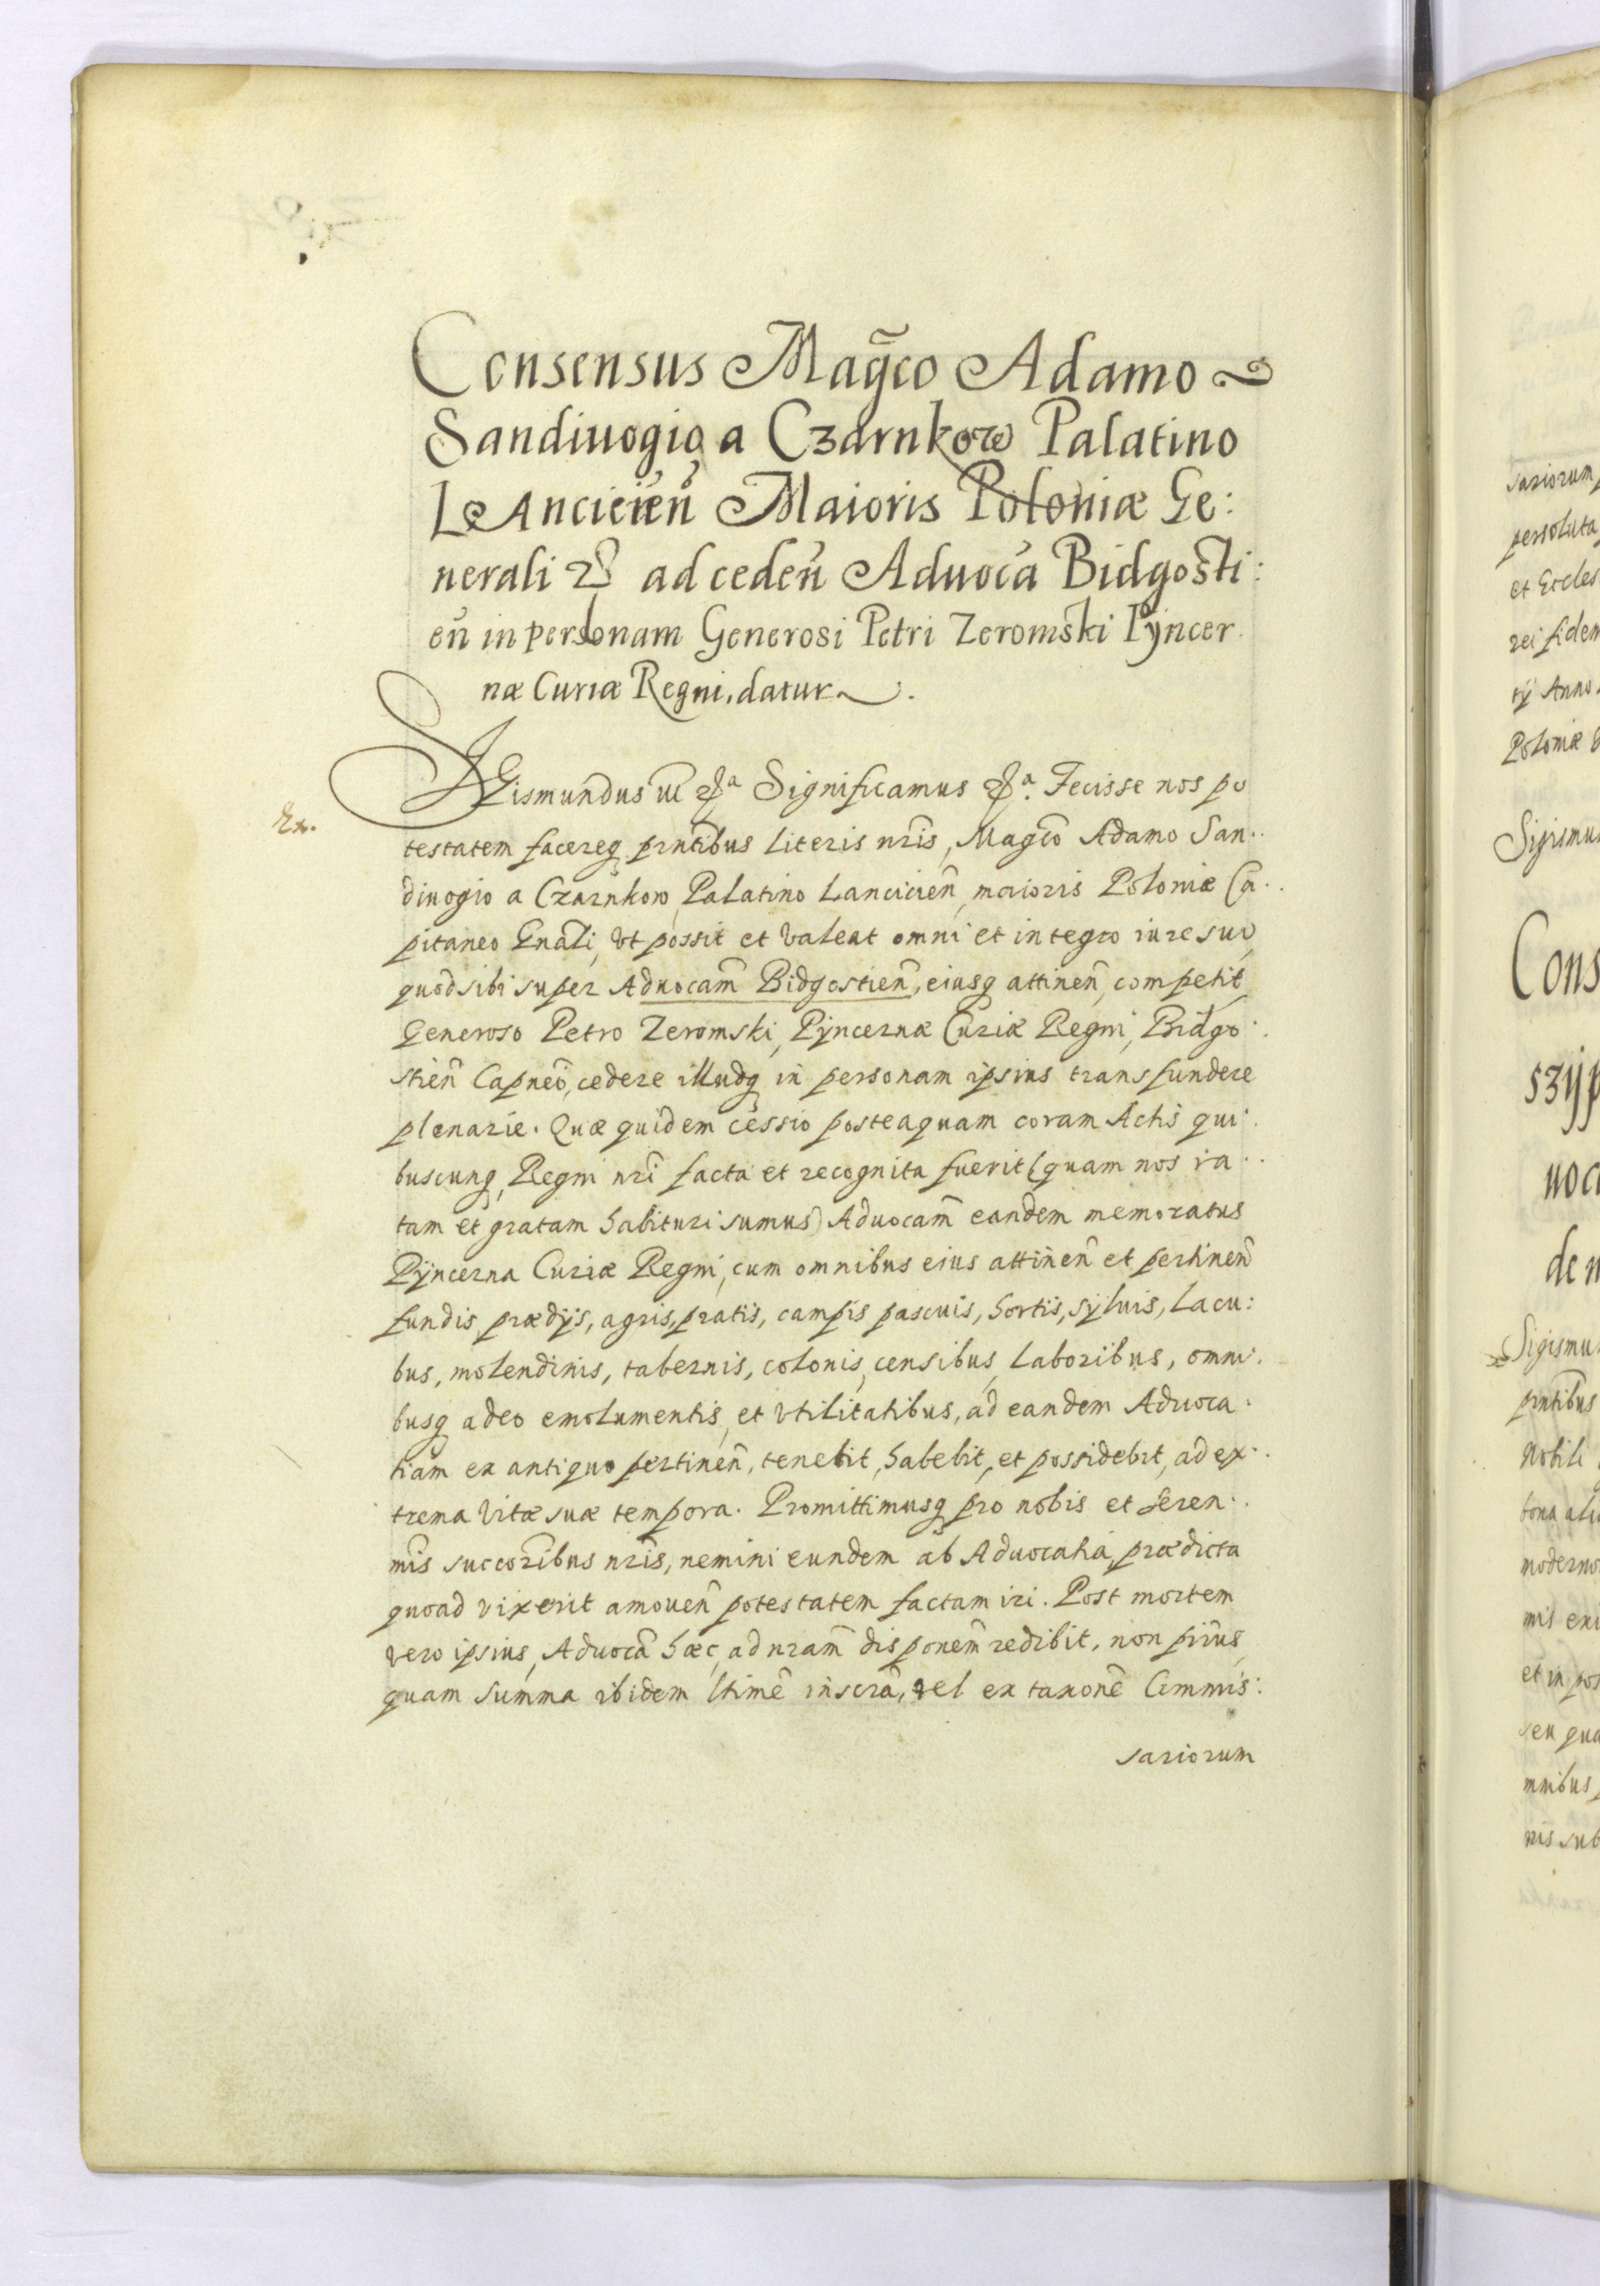 Consensus Mag̃co Adamo
Sandiuogio a Czarnkow Palatino
Lancicieñ Maioris Poloniæ Ge:
nerali ad cedeñ Aduocã Bidgosti:
eñ in personam Generosi Petri Zeromski Pyncer
næ Curiæ Regni, datur.
Sigismundus III &a Significamus &a. Fecisse nos po
Ex.
testatem facereq prñtibus literis nr̃is, Magco Adamo San..
diuogio a Czarnkow, Palatino Lancicieñ, maioris Poloniæ Ca..
pitaneo Gnãli, vt possit et valeat omni et integro iure suo,
quod sibi super Aduocam̃ Bidgostieñ, eiusq attineñ, competit,
Generoso Petro Zeromski, Pyncernæ Curiæ Regni, Bidgo.
stieñ Capneo, cedere illudq in personam ipsius transfundere
plenarie. Quæ quidem cessio posteaquam coram Actis qui.
buscunq, Regni nr̃i facta et recognita fuerit (quam nos ra..
tam et gratam habituri sumus) Aduocam̃ eandem memoratus
Pyncerna Curiæ Regni, cum omnibus eius attineñ et pertineñ
fundis prædijs, agris, pratis, campis pascuis, hortis, syluis, lacu:
bus, molendinis, tabernis, colonis, censibus, laboribus, omni.
busq adeo emolumentis, et vtilitatibus, ad eandem Aduoca.
tiam ex antiquo pertineñ, tenebit, habebit, et possidebit, ad ex..
trema vitæ suæ tempora. Promittimusq pro nobis et Seren..
mis succoribus nr̃is, nemini eundem ab Aduocatia, prædicta
quoad vixerit amoueñ potestatem factam iri. Post mortem
vero ipsius, Aduocã hæc, ad nram̃ disponem̃ redibit, non prius,
quam summa ibidem ltime inscra, vel ex taxone Commis:
sariorum
sariorum
persoluta
et Eccles
rei fidem
tij Anno
Poloniæ
Sigismu
Cons
szyp
uoca
de
Sigismu
prñtibus
Nobili
bona
moderno
mis
et in pos
seu qua
mnibus
nis sub